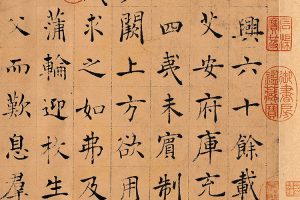 興六十餘載
艾安府庫充
四夷未賓制
闕上方欲用
求之如弗及
蒲輪迎枚生
父而歎息羣
御書房鑑藏寶